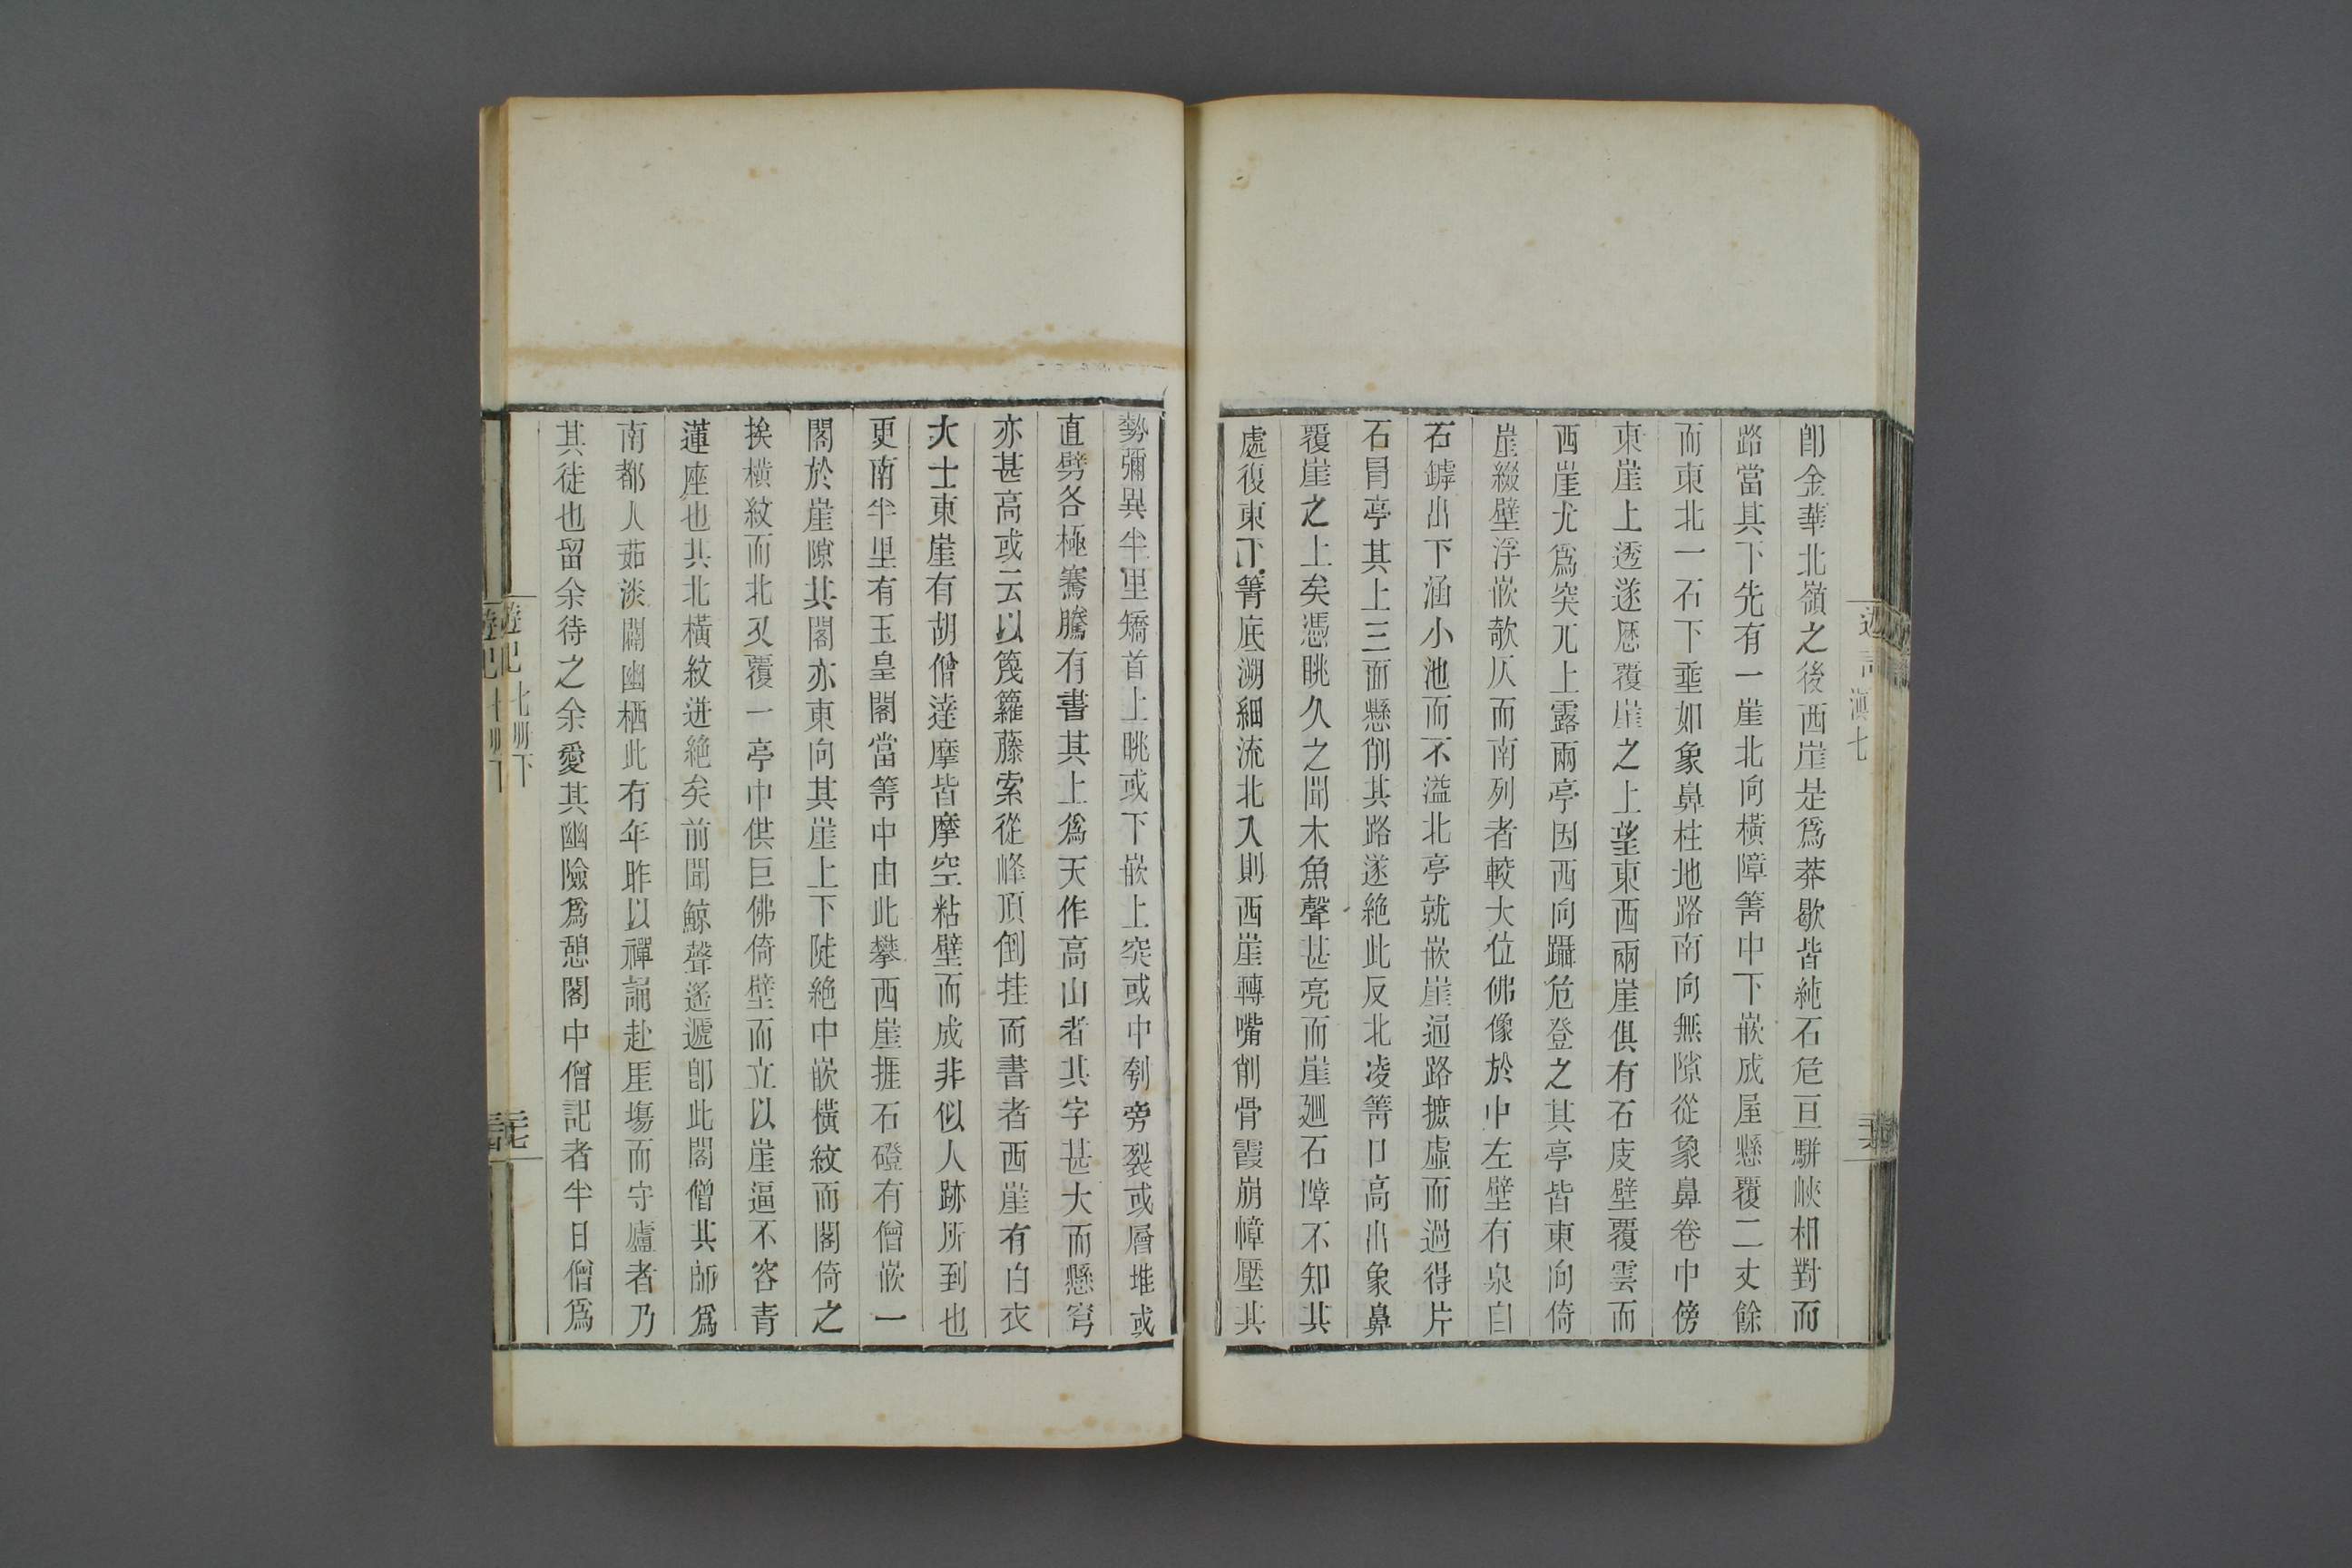 卽金華北嶺之後西崖是爲莽歇皆純石危亘駢峽相對而
路當其下先有一崖北向橫障箐中下嵌成屋懸覆二丈餘
而東北一石下垂如象鼻柱地路南向無隙從象鼻卷中傍
東崖上透遂歷覆崖之上望東西兩崖俱有石庋壁覆雲而
西崖尤爲突兀上露兩亭因西向躡危登之其亭皆東向倚
崖綴壁浮嵌欹仄而南列者較大位佛像於中左壁有泉自
石罅出下涵小池而不溢北亭就嵌崖通路摭虛而過得片
石冒亭其上三面懸削其路遂絶此反北凌箐口高出象鼻
覆崖之上矣憑眺久之聞木魚聲甚亮而崖廻石障不知其
處復東下箐底溯細流北入則西崖轉嘴削骨霞崩幛壓其
勢彌異半里矯首上眺或下嵌上突或中刳旁裂或層堆或
直劈各極騫騰有書其上爲天作高山者其字甚大而懸穹
亦甚高或云以篾籮藤索從峰頂倒挂而書者西崖有白衣
大士東崖有胡僧達摩皆摩空粘壁而成非似人跡所到也
更南半里有玉皇閣當箐中由此攀西崖捱石磴有僧嵌一
閣於崖隙其閣亦東向其崖上下陡絶中嵌橫紋而閣倚之
挨橫紋而北又覆一亭中供巨佛倚壁而立以崖逼不容青
蓮座也其北橫紋迸絶矣前聞鯨聲遙遞卽此閣僧其師爲
南都人茹淡闢幽栖此有年昨以禪誦赴崖塲而守廬者乃
其徒也留余待之余愛其幽險爲憩閣中僧記者半日僧爲
遊記 滇七
遊記 十册下